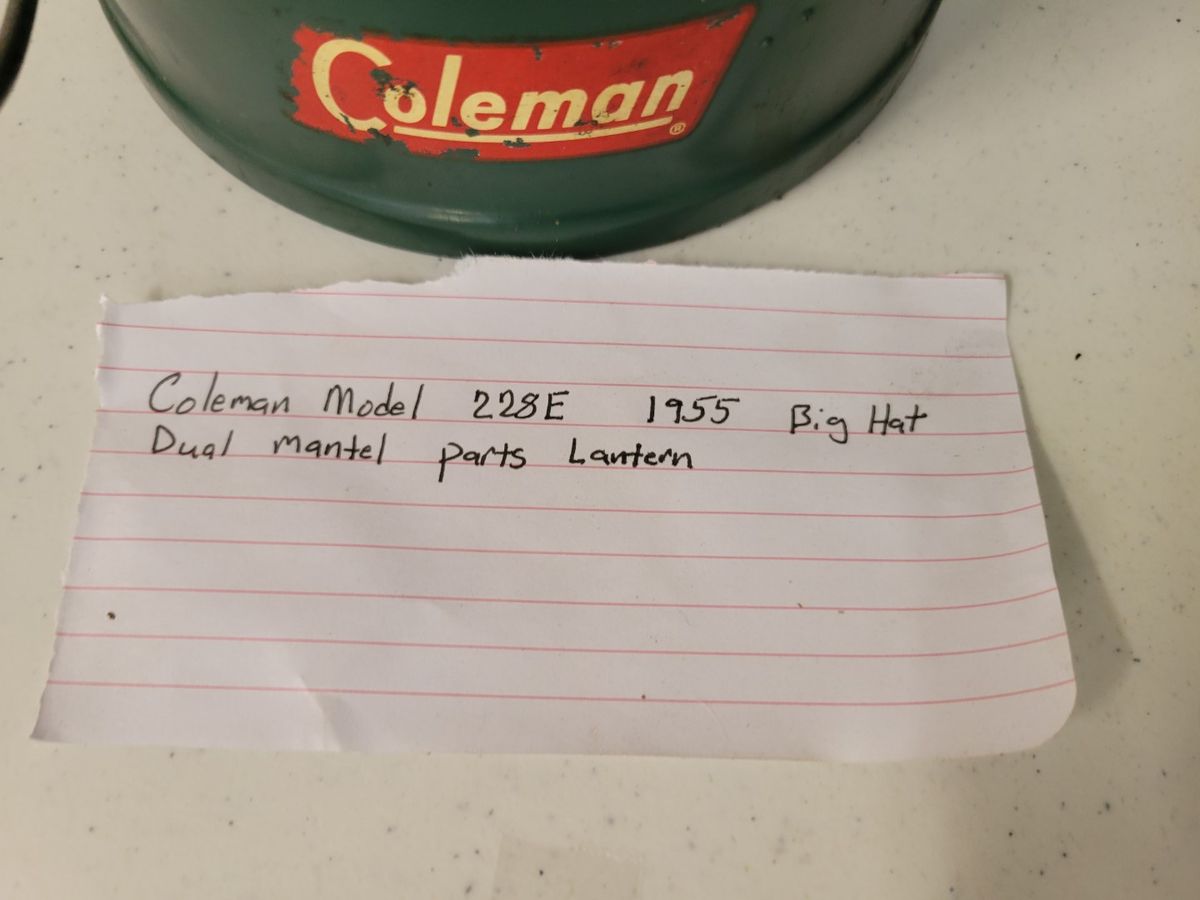 Coleman®
Coleman Model 228E 1955 Big Hat
Dual mantel parts Lantern